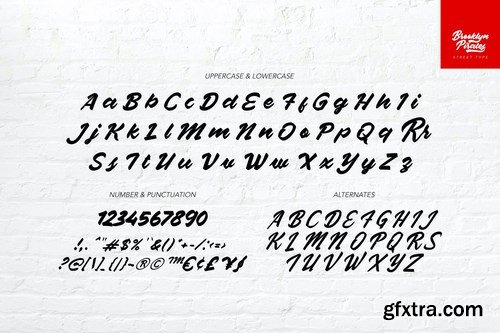 Brooklyn
Pirates
STREET TYPE
UPPERCASE & LOWERCASE
A a B b C c D d E e F f G g H h I i
J j K k L l M m N n O o P p Q q R r
S s T t U u V v W w X x Y y Z z
NUMBER & PUNCTUATION
1234567890
ALTERNATES
A B C D E F G H I J
K L M N O P Q R S
T U V W X Y Z
gfxtra.com